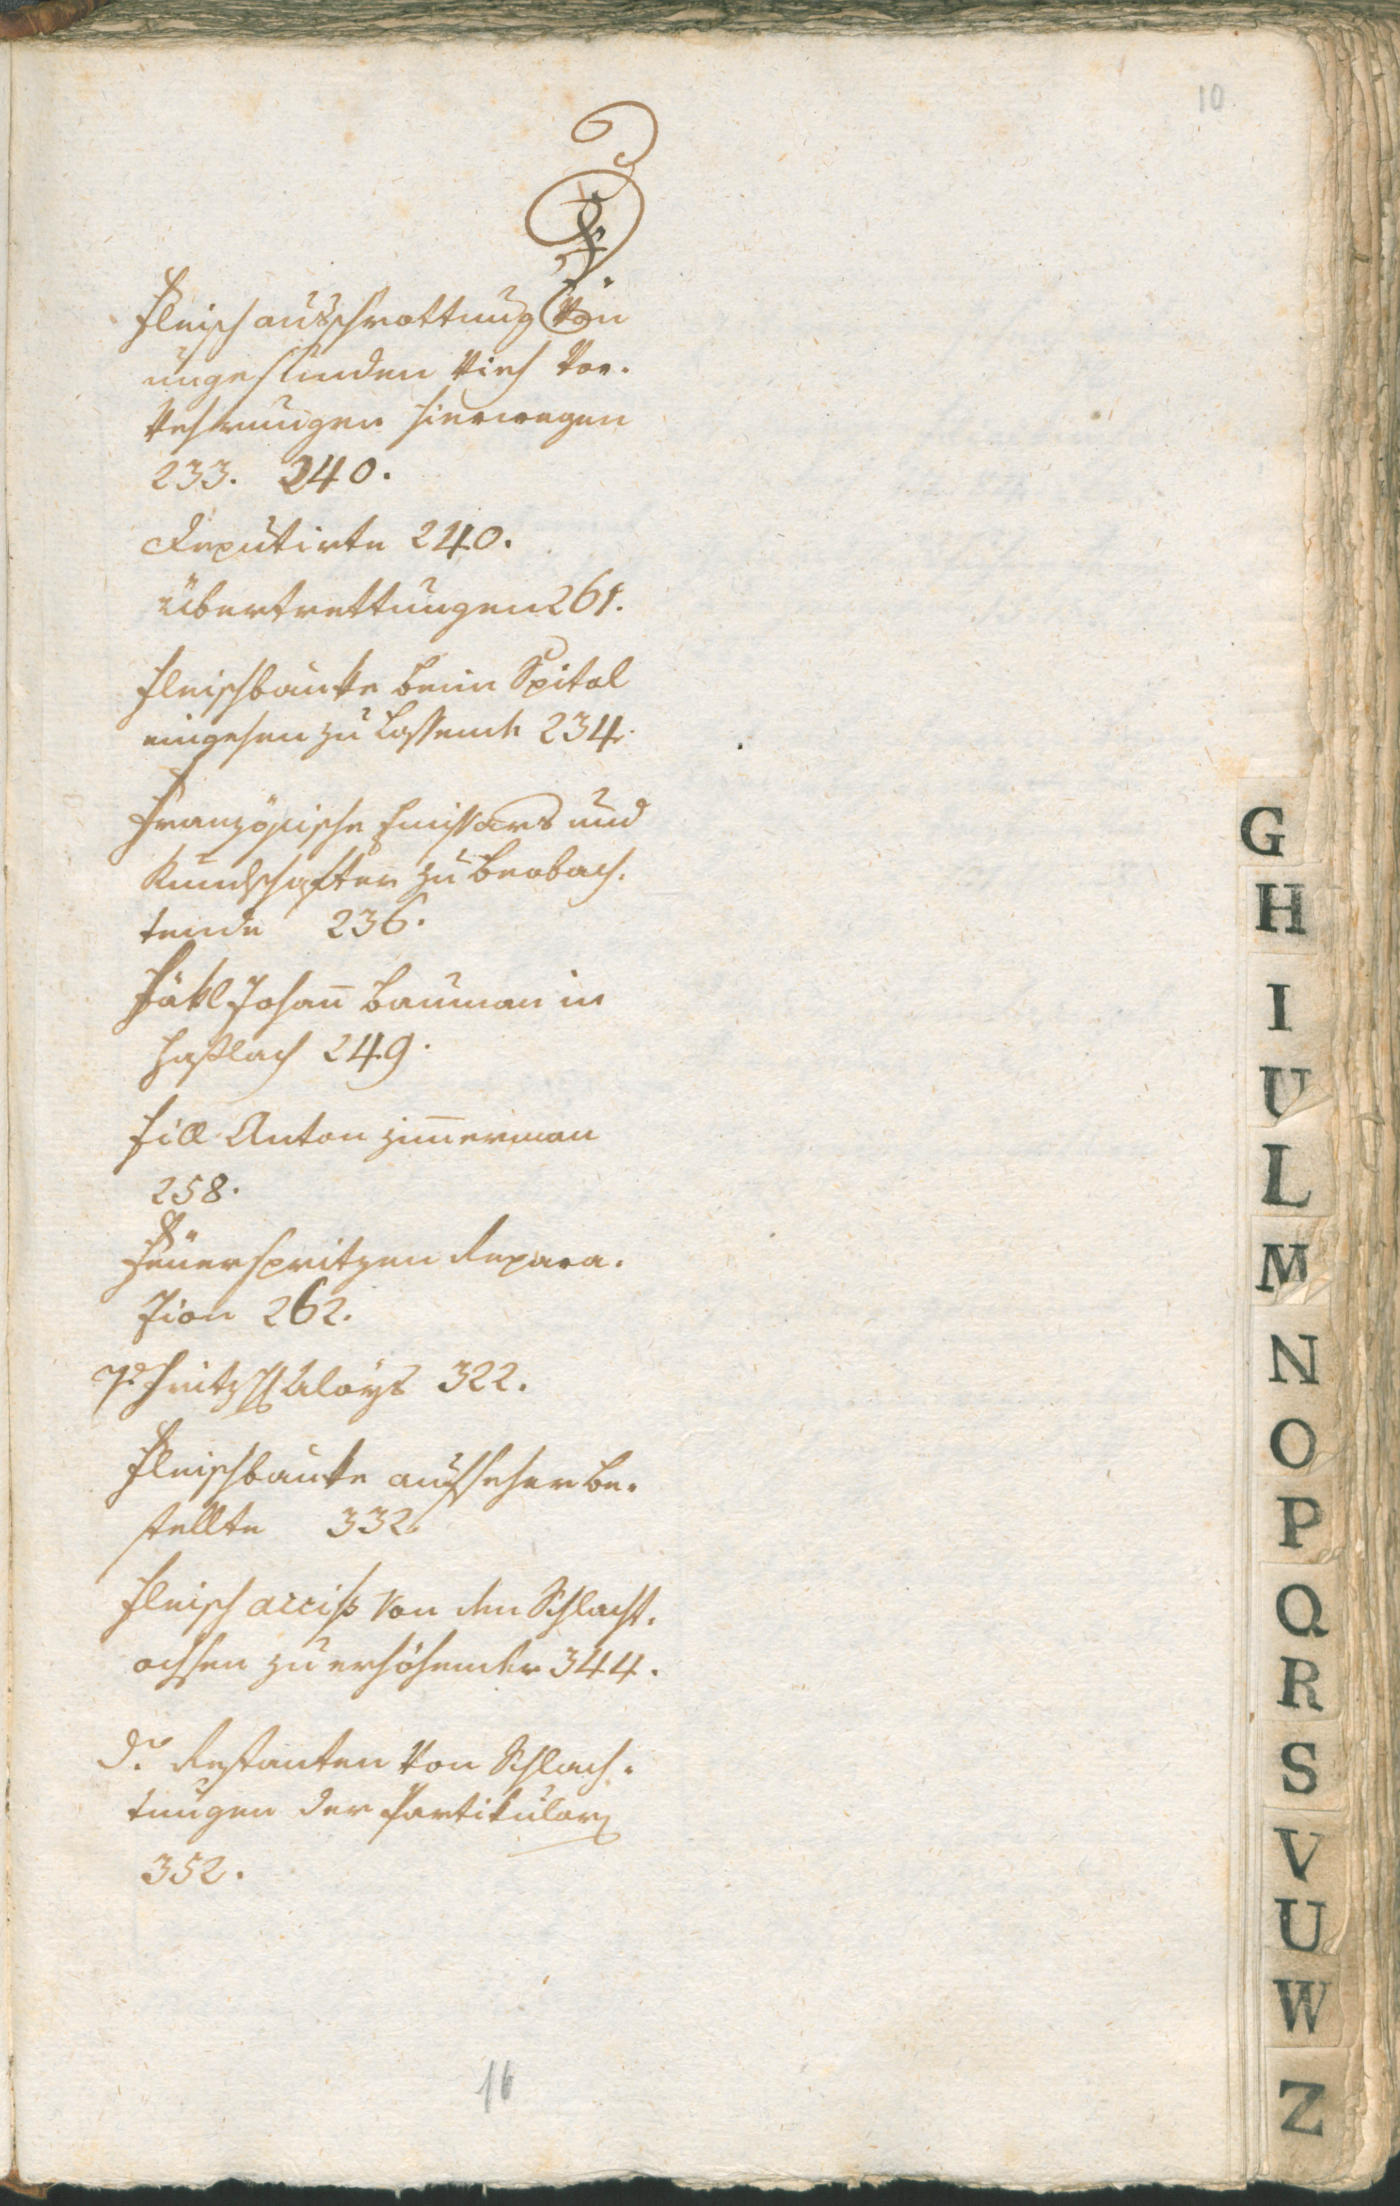 10
F.
Fleisch ausschrottung von
ungesunden Vieh Vor.
kehrungen hierwegen
233. 240.
Deputirte 240.
Übertrettungen 261.
Fleischbänke beim Spital
eingehen zu lassende 234.
Französische Emissars und
Kundschafter zu beobach.
tende 236.
Fäkl Johan̄ Bauman in
Haßlach 249.
Fill Anton Zim̄erman
258.
Feüerspritzen Repara.
zion 262.
Fritz Aloys 322.
Fleischbänke aufseher be.
stellte 332.
Fleisch acciß von den Schlacht.
ochsen zu erhöhender 344.
do. Restanten von Schlach.
tungen der Partikular
352.
16
G
H
I
U
L
M
N
O
P
Q
R
S
V
U
W
Z